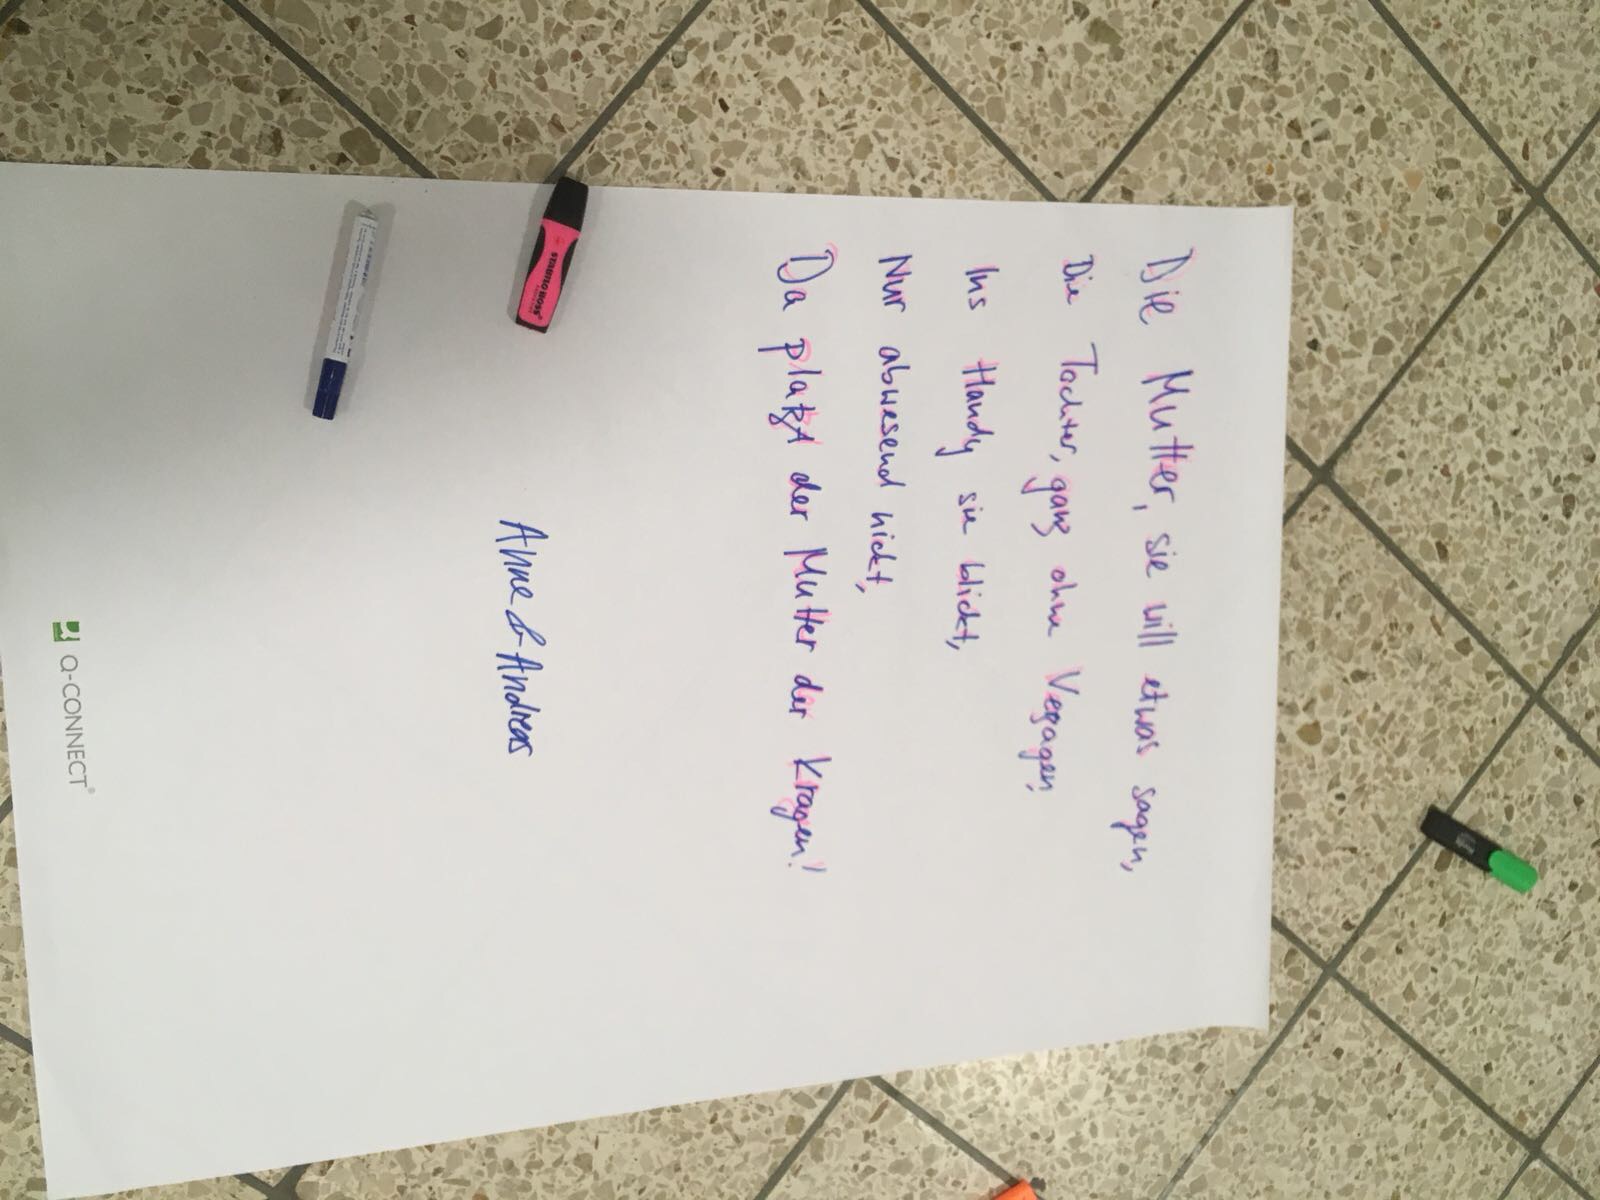 Die Mutter, sie will etwas sagen,
Die Tochter, ganz ohne Vegagen,
Ins Handy sie blickt,
Nur abwesend nickt,
Da platzt der Mutter der Kragen!
Anne & Andreas
Q-CONNECT®
STABILO BOSS®